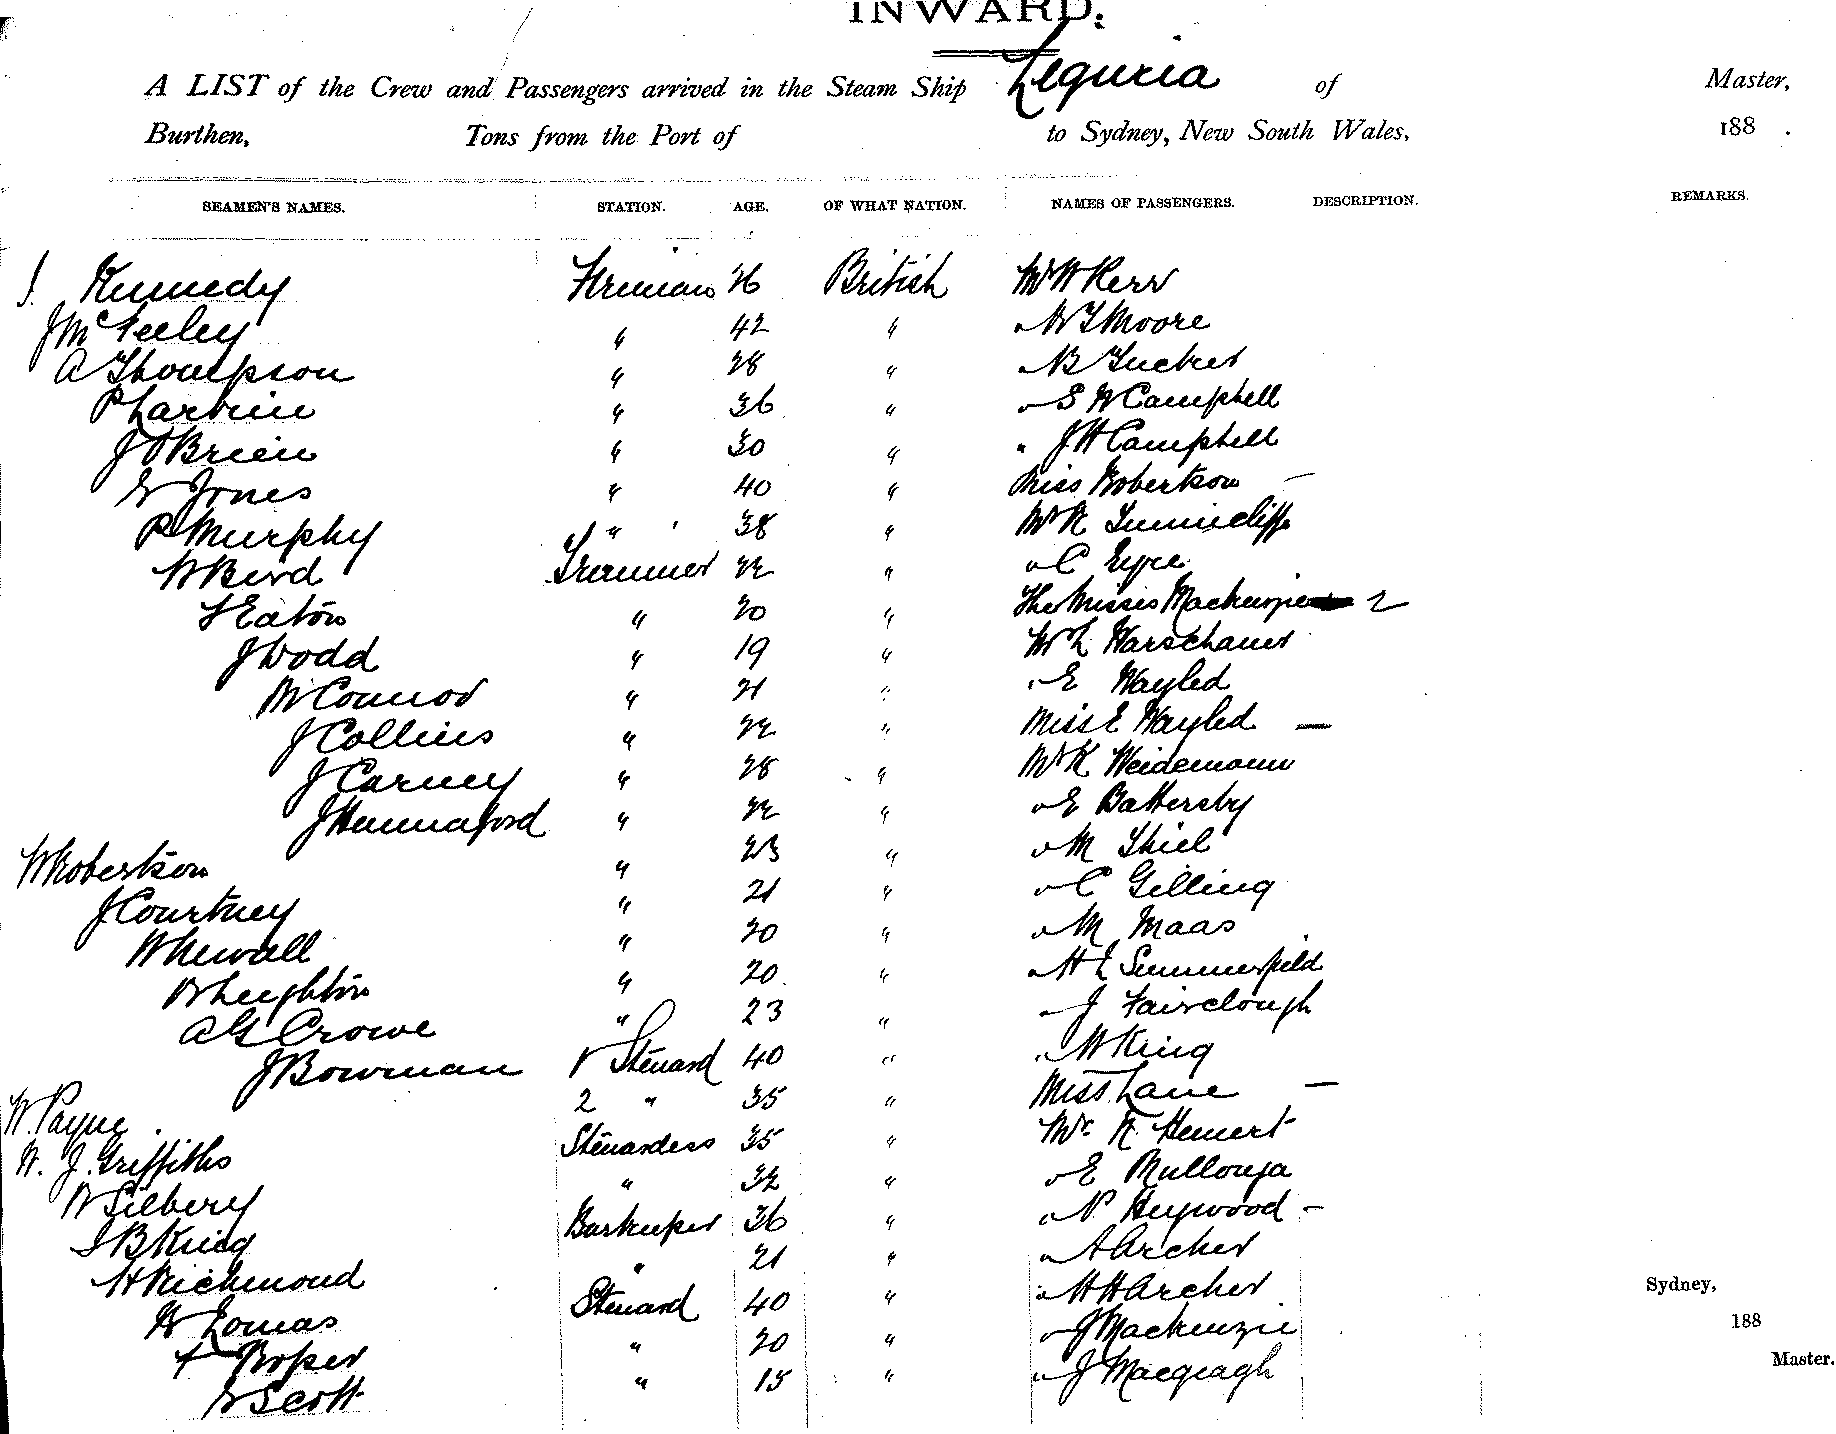 INWARD.
A LIST of the Crew and Passengers arrived in the Steam Ship Liguria of Master,
Burthen, Tons from the Port of to Sydney, New South Wales, 188 .
SEAMEN'S NAMES. STATION. AGE. OF WHAT NATION. NAMES OF PASSENGERS. DESCRIPTION. REMARKS.
J. Kennedy Fireman 26 British Mr W Kerr
J McFeeley " 42 " " Moore
A Thompson " 28 " " B Tucker
P Larkin " 36 " " S W Campbell
J O'Brien " 30 " " J H Campbell
Jones " 40 " Miss Robertson —
P Murphy " 38 " Mr R Tunnicliffe
W Bird Trimmer 22 " " C Eyre
F Eaton " 20 " The Misses Mackenzie 2
J Dodd " 19 " Mr L Warschauer
W Connor " 21 " " E Wayled
J Collins " 22 " Miss E Wayled —
J Carney " 28 " Mr K Weidemann
J Hannaford " 22 " " E Battersby
W Robertson " 23 " " M Shiel
J Courtney " 21 " " C Gilling
W Newall " 20 " " M Maas
Leighton " 20 " " H L Summerfield
A G Crowe " 23 " " J Fairclough
J Bowman 1 Steward 40 " " W King
W. Payne 2 " 35 " Miss Lane —
W. J. Griffiths Stewardess 35 " Mr R Hemert
W Silbery " 32 " " E Mullonga
J B King Barkeeper 36 " " P Heywood -
H Richmond " 21 " " A Archer
W Lomas Steward 40 " " H H Archer Sydney,
F Roper " 20 " " J Mackenzie 188
Scott " 15 " " J Macgeagh Master.